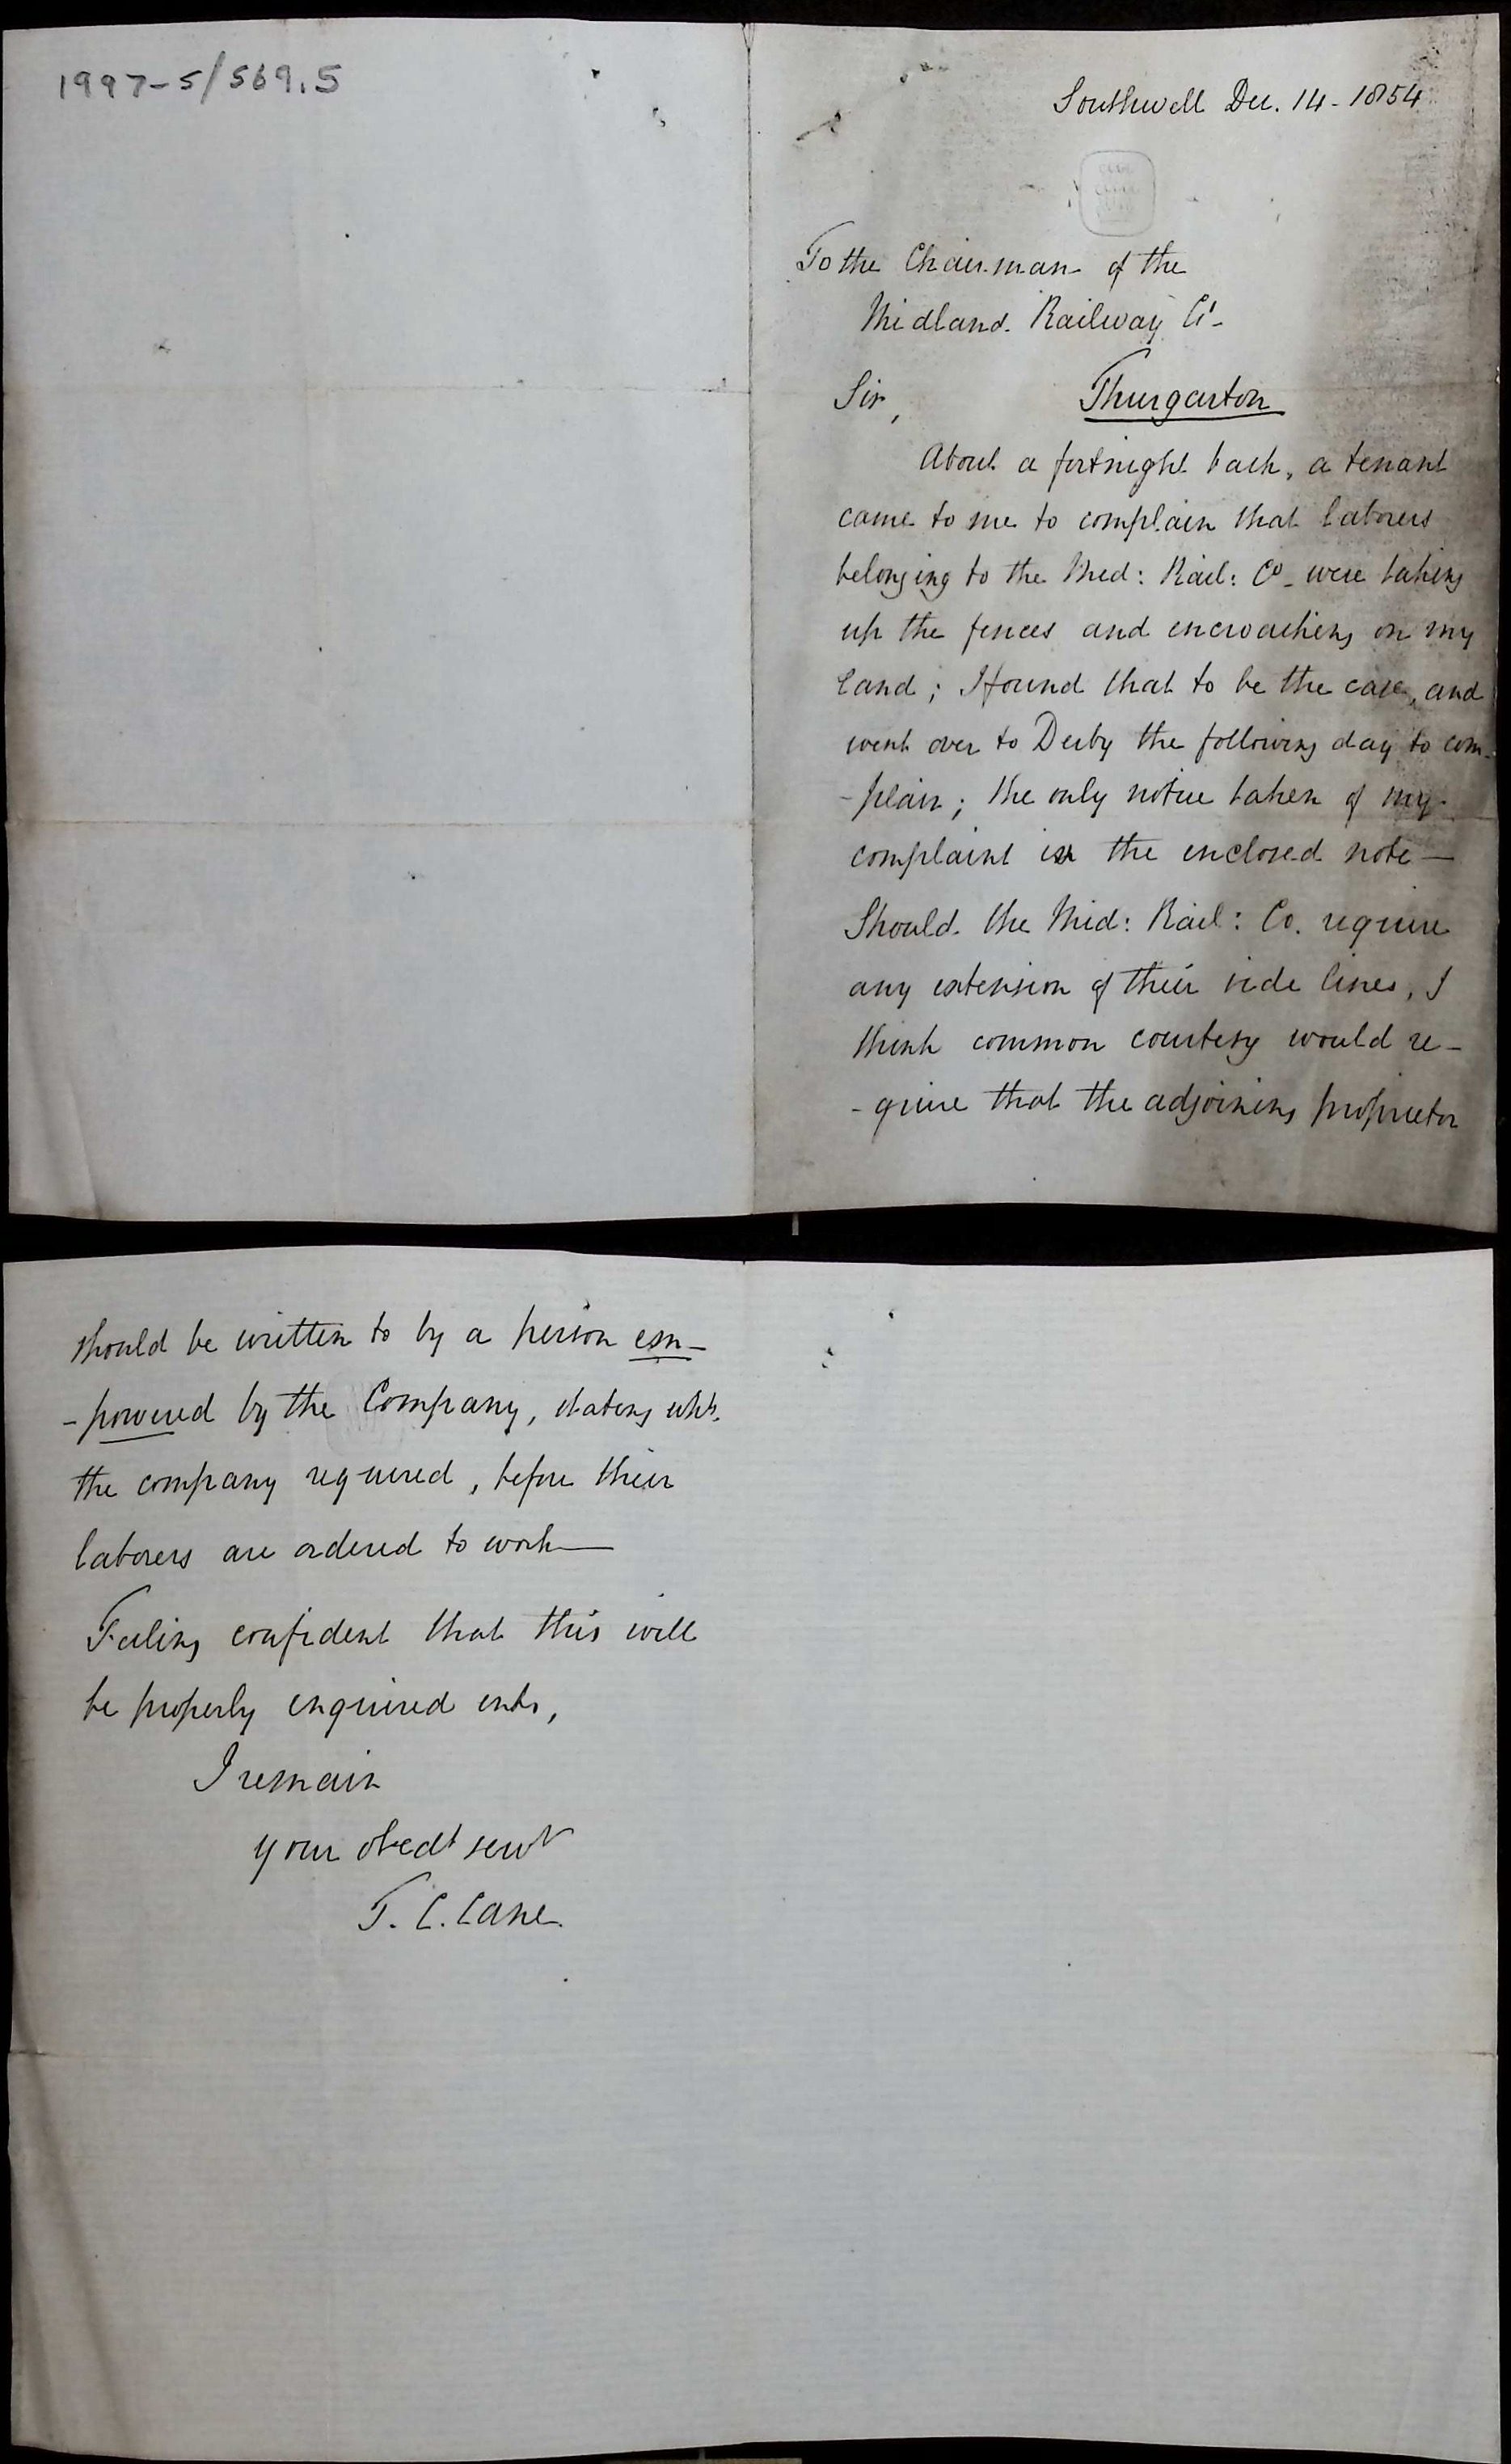 1997-5/569.5
Southwell Dec. 14 - 1854
To the Chairman of the
Midland Railway Co-
Sir, Thurgarton
About a fortnight back, a tenant
came to me to complain that laborers
belonging to the Mid: Rail: Co - were taking
up the fences and encroaching on my
land; I found that to be the case, and
went over to Derby the following day to com-
-plain; the only notice taken of my
complaint is the enclosed note —
Should the Mid: Rail: Co. require
any extension of their side lines, I
think common courtesy would re-
-quire that the adjoining proprietor
should be written to by a person em-
-powered by the Company, stating what
the company required, before their
laborers are ordered to work —
Feeling confident that this will
be properly enquired into,
I remain
your obedt servt
T. C. Cane.